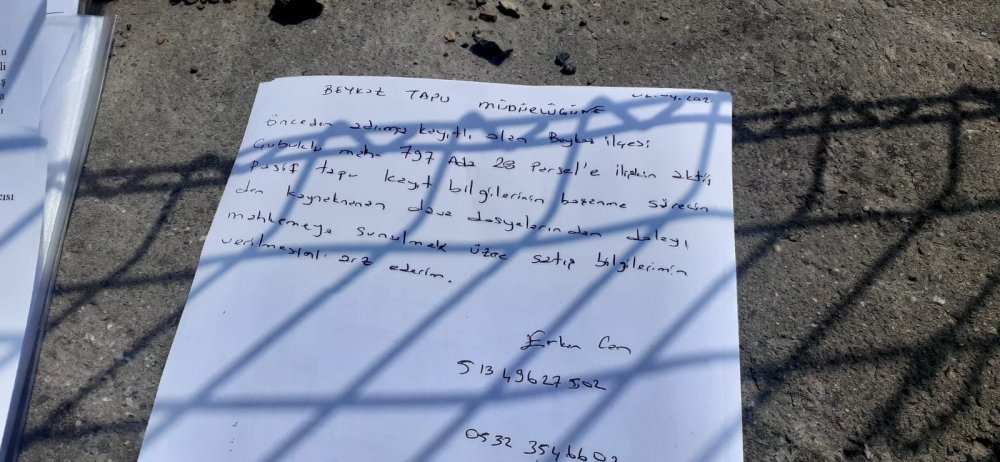 BEYKOZ TAPU MÜDÜRLÜĞÜNE
önceden adıma kayıtlı olan Beykoz ilçesi
Çubuklu mahn 797 Ada 28 Parsel'e ilişkin aktif,
Pasif tapu kayıt bilgilerinin boşanma sürecin
den kaynaknanan dava dosyalarından dolayı
mahkemeye sunulmak üzre satış bilgilerimin
verilmesini arz ederim.
Erkan Can
51349627502
0532 3546602
u
li
ş
a
ı
cısı